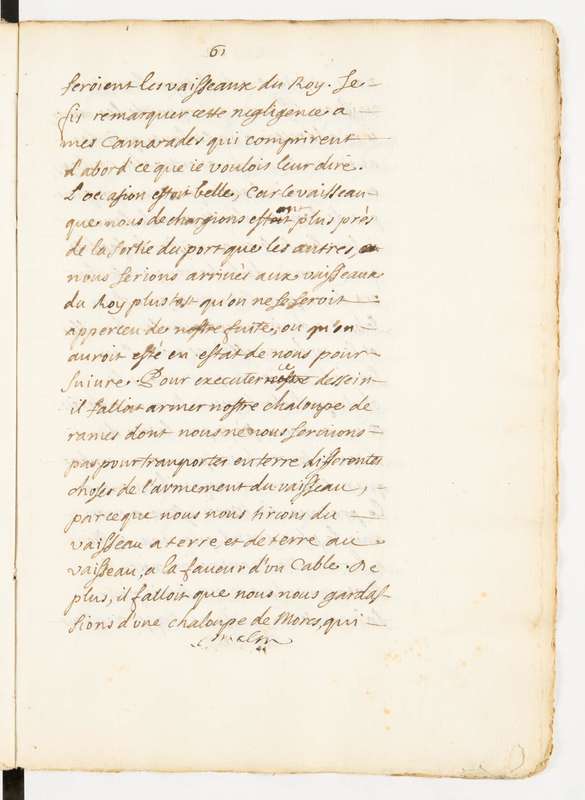 61
seroient les vaisseaux du Roy. Je
fis remarquer cette negligence a
mes Camarades qui comprirent
d'abord ce que ie voulois leur dire.
L'occasion estoit belle, Car le vaisseau
que nous dechargions estant plus près
de la sortie du port que les autres,
nous serions arrivés aux vaisseaux
du Roy plustost qu'on ne se seroit
apperceu de nostre fuite, ou qu'on
auroit esté en estat de nous pour
suivre. Pour executer ce dessein
il falloit armer nostre chaloupe de
rames dont nous ne nous servions
pas pour transporter en terre differentes
choses de l'armement du vaisseau,
parce que nous nous tirions du
vaisseau a terre, et de terre au
vaisseau, a la faveur d'un Cable. De
plus, il falloit que nous nous gardas
sions d'une chaloupe de Mores, qui